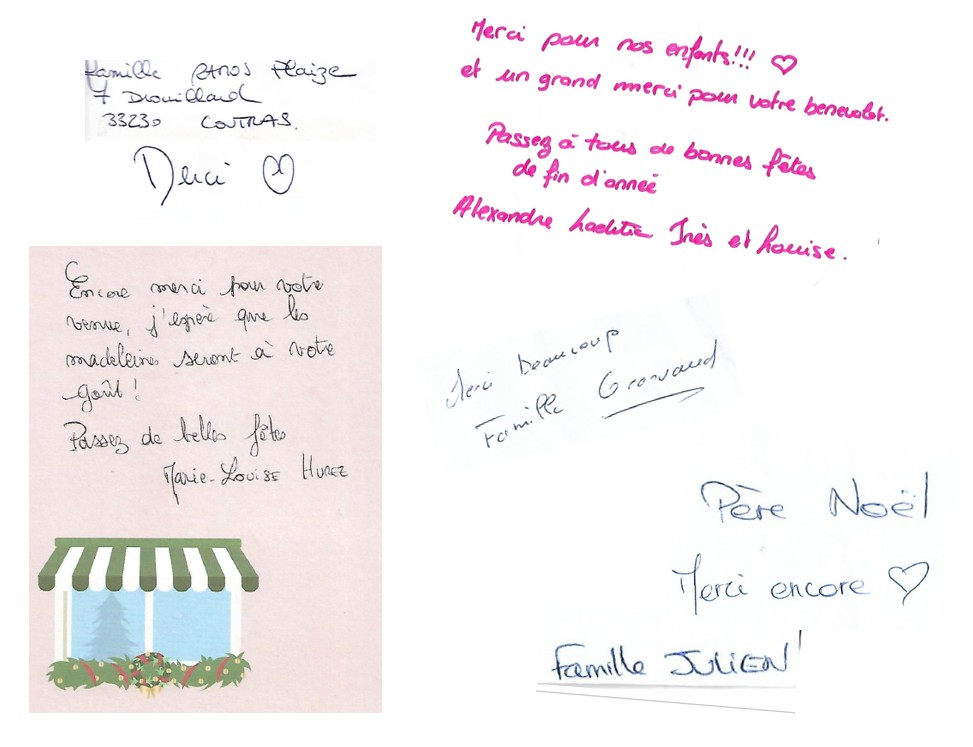 Famille RAMOS Plaize
7 Drouillard
33230 COUTRAS.
Merci
Merci pour nos enfants!!! ♡
et un grand merci pour votre benevolat.
Passez à tous de bonnes fêtes
de fin d'anneé
Alexandre Laetitia Inès et Louise.
Encore merci pour votre
venue, j'espère que les
madeleines seront à votre
goût !
Passez de belles fêtes
Marie-Louise HUREZ
Merci beaucoup
Famille
Père Noël
Merci encore ♡
Famille JULIEN